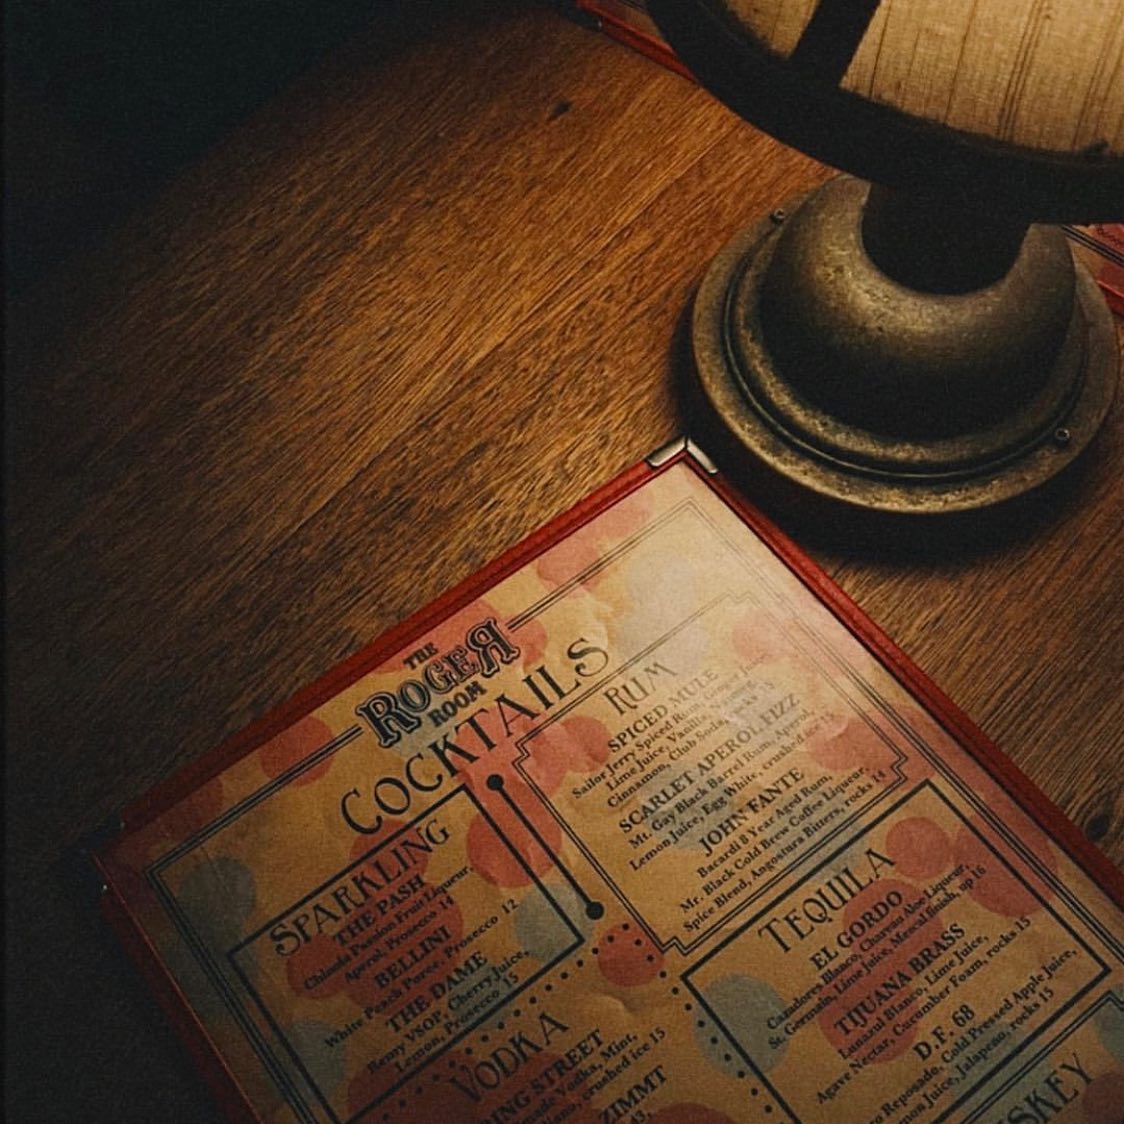 THE
ROGER
ROOM
COCKTAILS
SPARKLING
THE PASH
Chinola Passion Fruit Liqueur,
Aperol, Prosecco 14
BELLINI
White Peach Puree, Prosecco 12
THE DAME
Remy VSOP, Cherry Juice,
Lemon, Prosecco 15
RUM
SPICED MULE
Sailor Jerry Spiced Rum, Ginger
Lime Juice, Vanilla,
Cinnamon, Club Soda, rocks 15
SCARLET APEROL FIZZ
Mt. Gay Black Barrel Rum, Aperol,
Lemon Juice, Egg White, crushed ice 15
JOHN FANTE
Bacardi 8 Year Aged Rum,
Mr. Black Cold Brew Coffee Liqueur,
Spice Blend, Angostura Bitters, rocks 14
VODKA
ING STREET
Vodka, Mint,
crushed ice 15
ZIMMT
TEQUILA
EL GORDO
Cazadores Blanco, Chareau Aloe Liqueur,
St. Germain, Lime Juice, Mezcal finish, up 16
TIJUANA BRASS
Lunazul Blanco, Lime Juice,
Agave Nectar, Cucumber Foam, rocks 15
D.F. 68
Reposado, Cold Pressed Apple Juice,
Juice, Jalapeno, rocks 15
SKEY